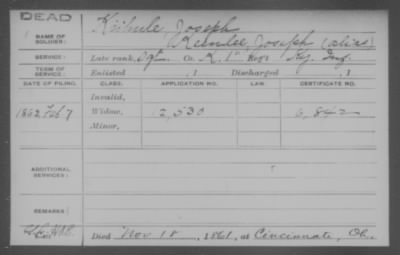 DEAD
NAME OF SOLDIER: Kiibule, Joseph
Kunlee, Joseph (alias)
SERVICE: Late rank, Sgt. Co. K, 1" Reg't Ky. Inf.
TERM OF SERVICE: Enlisted , 1 Discharged , 1
DATE OF FILING. CLASS. APPLICATION NO. LAW. CERTIFICATE NO.
Invalid,
1862, Feb 7 Widow, 12,530 6,842
Minor,
ADDITIONAL SERVICES:
REMARKS:
Died Nov 18, 1861, at Cincinnati, Oh.